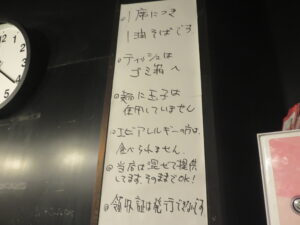 ◎1席につき
1油そばです
◎ティッシュは
ゴミ箱へ
◎麺に玉子は
使用していません
◎エビアレルギーの方は、
食べられません。
◎当店は混ぜて提供
してます。そのままでOK!
◎領収証は発行できません